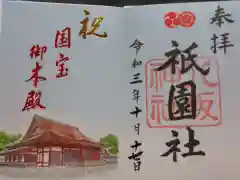 奉拝
祇園社
令和三年十月十七日
祝
国宝
御本殿